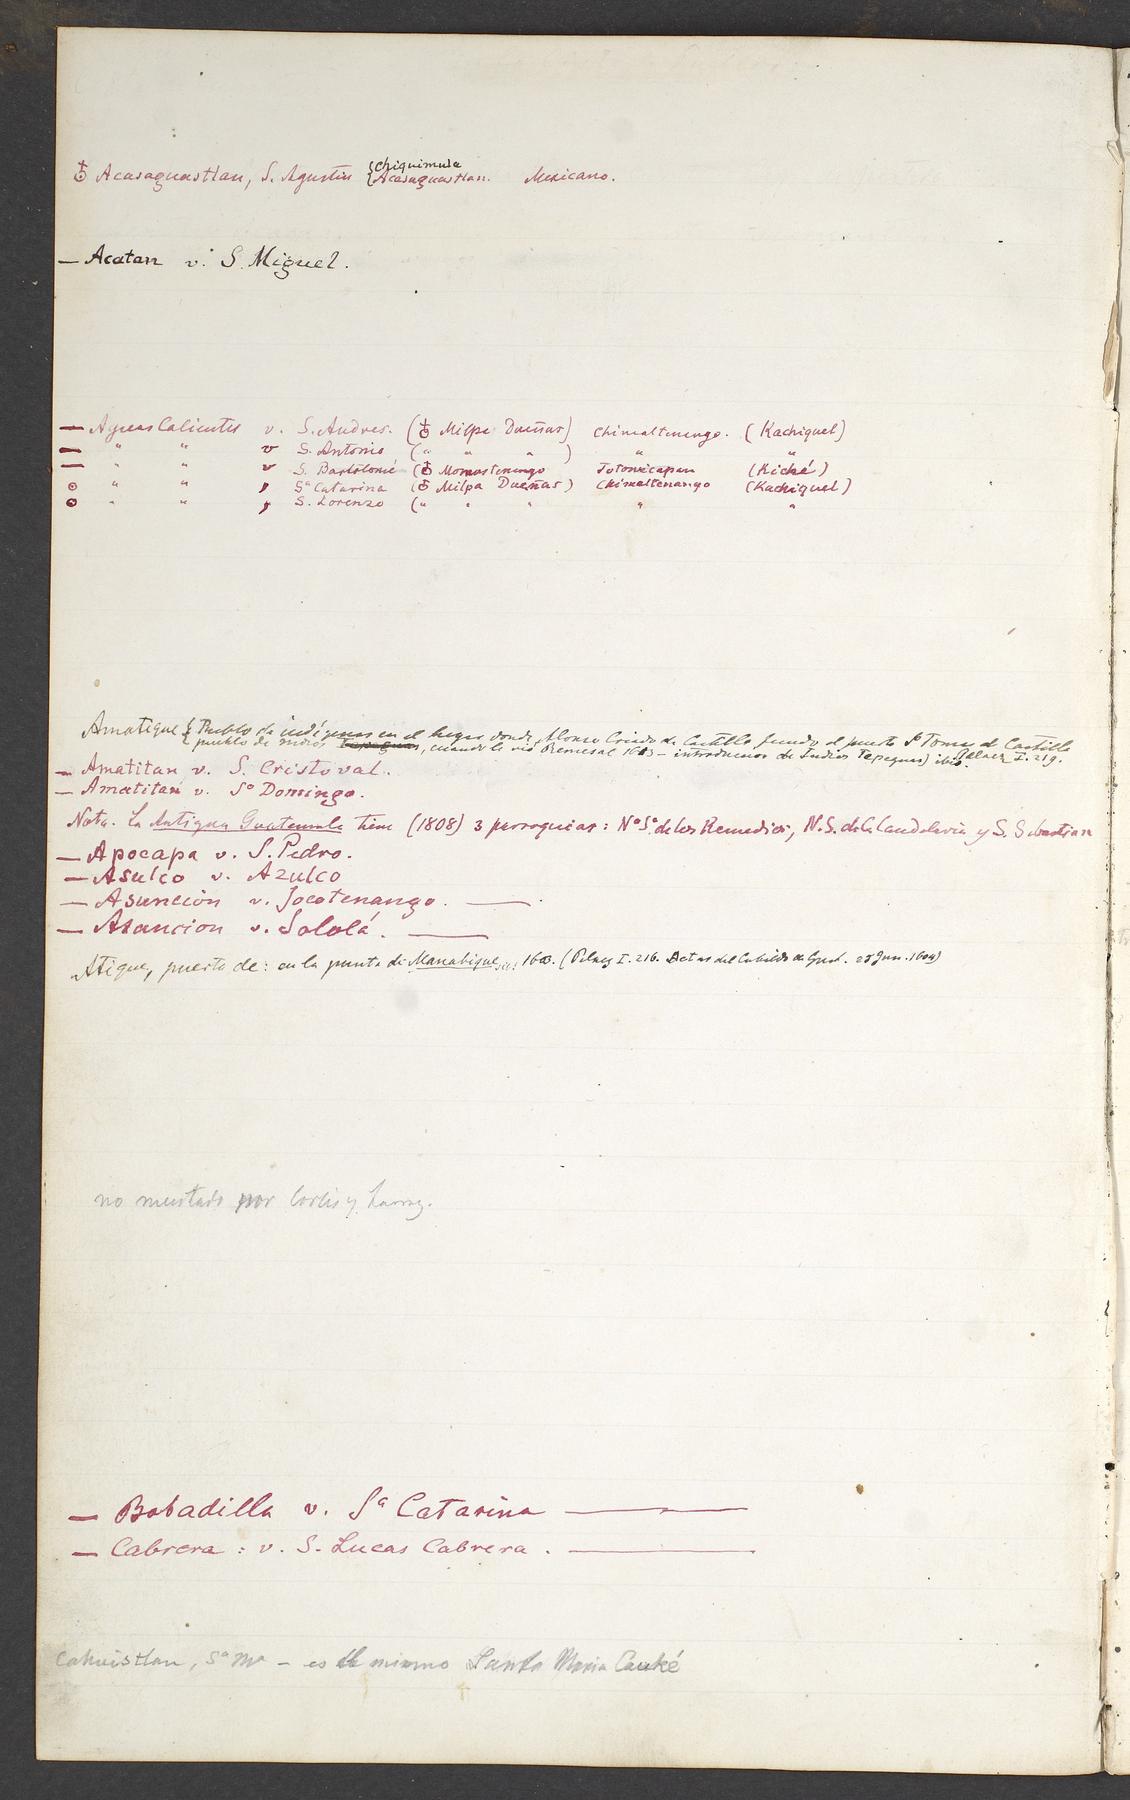 ♁ Acasaguastlan, S. Agustin { Chiquimula
Acasaguastlan. Mexicano.
— Acatan v. S. Miguel.
— Aguas Calientes v. S. Andres. (♁ Milpa Dueñas) Chimaltenango. (Kachiquel)
— " " v S. Antonio (" " " ) " "
— " " v S. Bartolomé (♁ Momostenango Totonicapan (Kiché)
⊙ " " , Sª Catarina (♁ Milpa Dueñas) Chimaltenango (Kachiquel)
⊙ " " , S. Lorenzo (" " " " "
Amatique { Pueblo de indígenas en el lugar donde Alonso Criado de Castillo fundó el puerto Sº Tomas de Castillo
{ pueblo de indios , cuando le vió Remesal 1603 — introduccion de Indios Tepeques) ibid. Pelaez I. 219.
— Amatitan v. S. Cristoval.
— Amatitan v. Sº Domingo.
Nota. La Antigua Guatemala tiene (1808) 3 parroquias: Nª Sª de los Remedios, N. S. de la Candelaria y S. Sebastian
— Apocapa v. S. Pedro.
— Asulco v. Azulco
— Asuncion v. Jocotenango. —
— Asuncion v. Sololá. —
Atique, puerto de: en la punta de Manabique 1603. (Pelaez I. 216. Actas del Cabildo de Guat. 25 Jun. 1604)
no mentado por Cortes y Larraz.
— Bobadilla v. Sª Catarina —
— Cabrera : v. S. Lucas Cabrera . —
Cahuistlan, Sª Mª — es el mismo Santa Maria Cauké